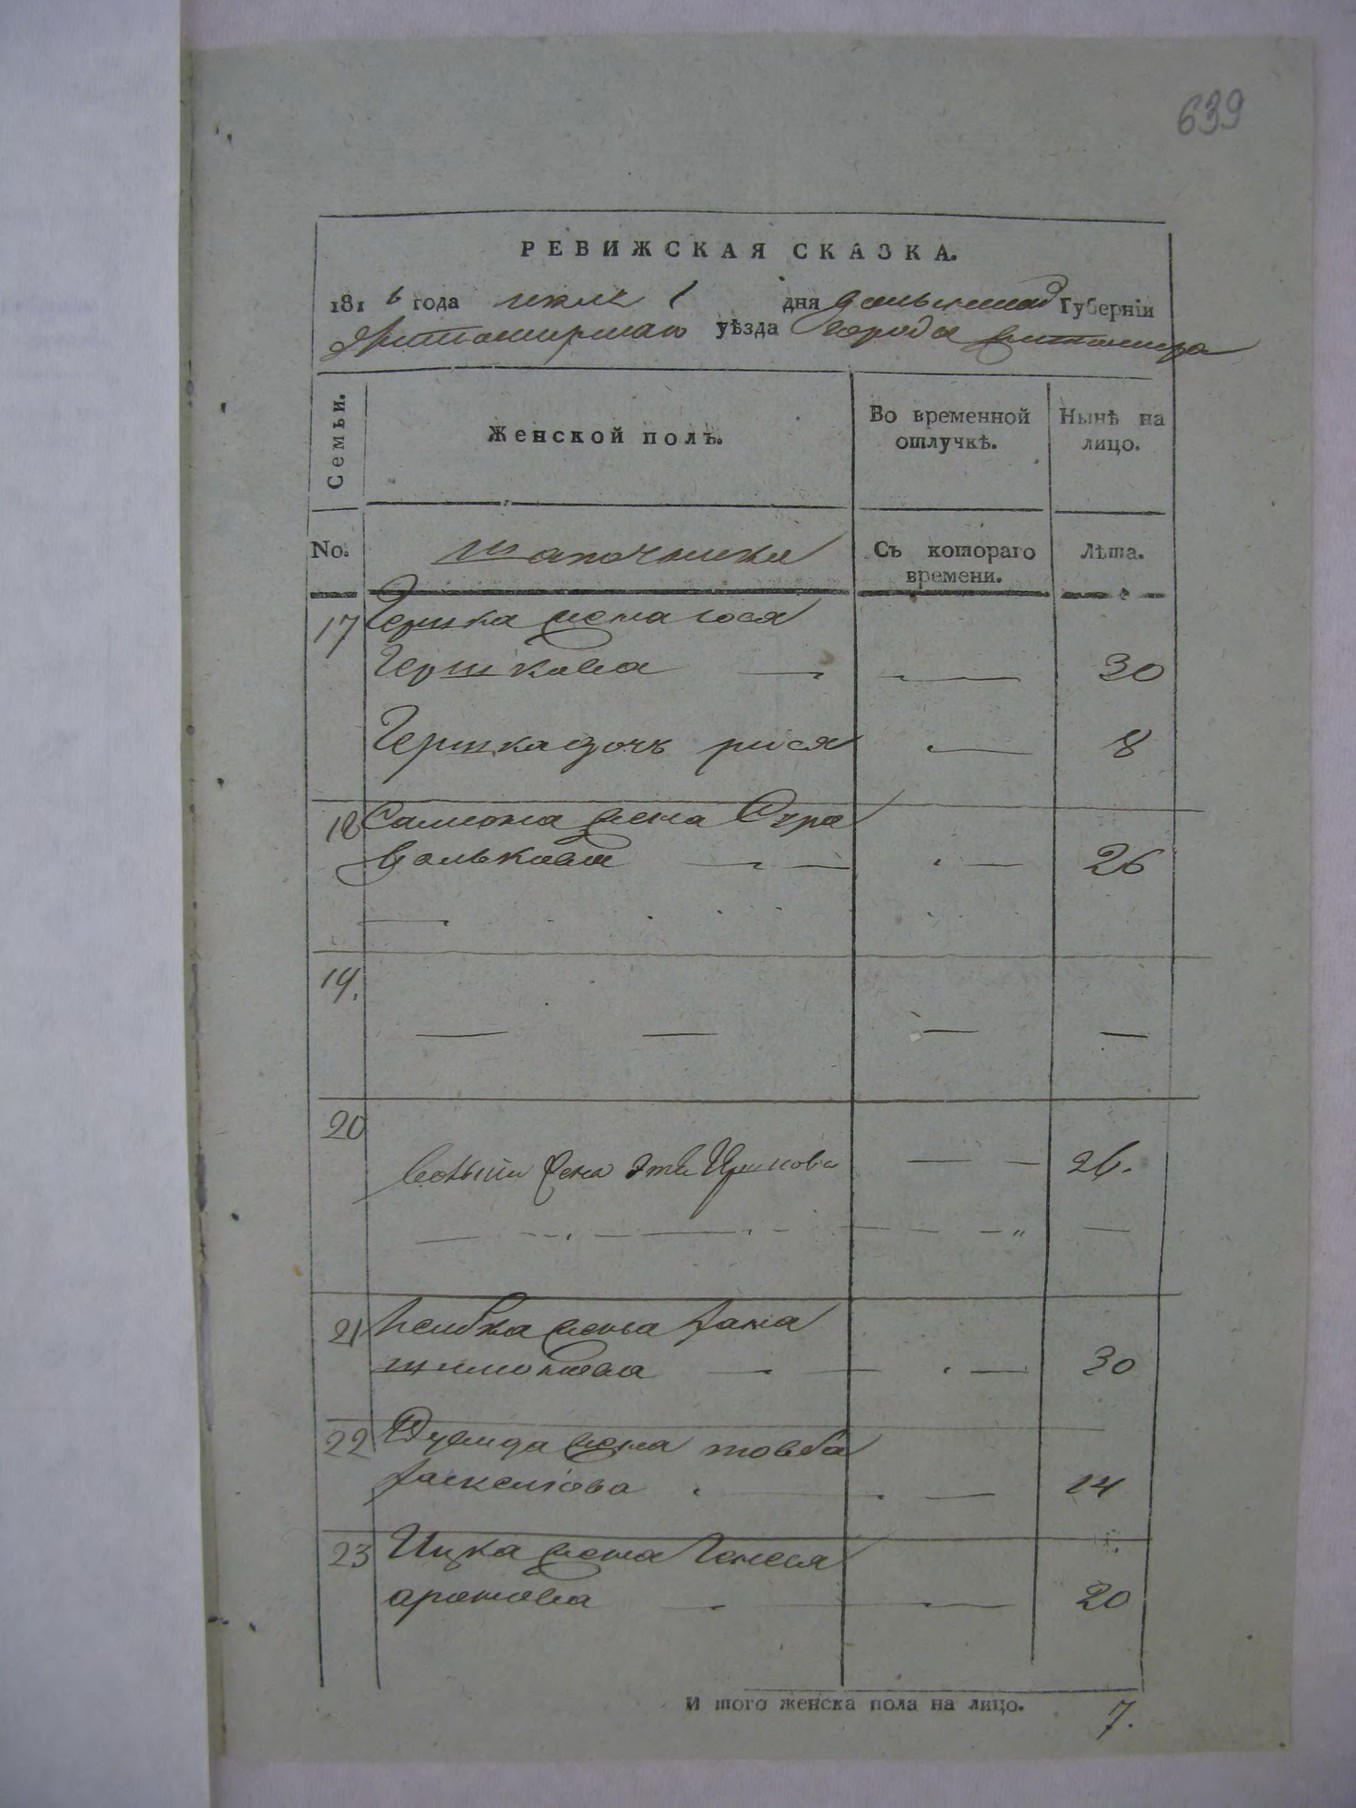 639
РЕВИЖСКАЯ СКАЗКА.
1816 года июля 1 дня Волынской Губерніи
Житомирскаго уѣзда города Житомира
Семьи.
Женской полъ.
Во временной
отлучкѣ.
Нынѣ на
лицо.
No.
Съ котораго
времени.
Лѣта.
17 Гершка жена Гося
Гершкова — — 30
Гершка дочь рися — 8
18 жена
Волькова — — — 26
19.
— — — —
20
жена — — 26.
21 Лейбка жена Хана
— — — 30
22 жена товба
— — 14
23 Ицка жена Генеся
аронова — — 20
И того женска пола на лицо. 7.